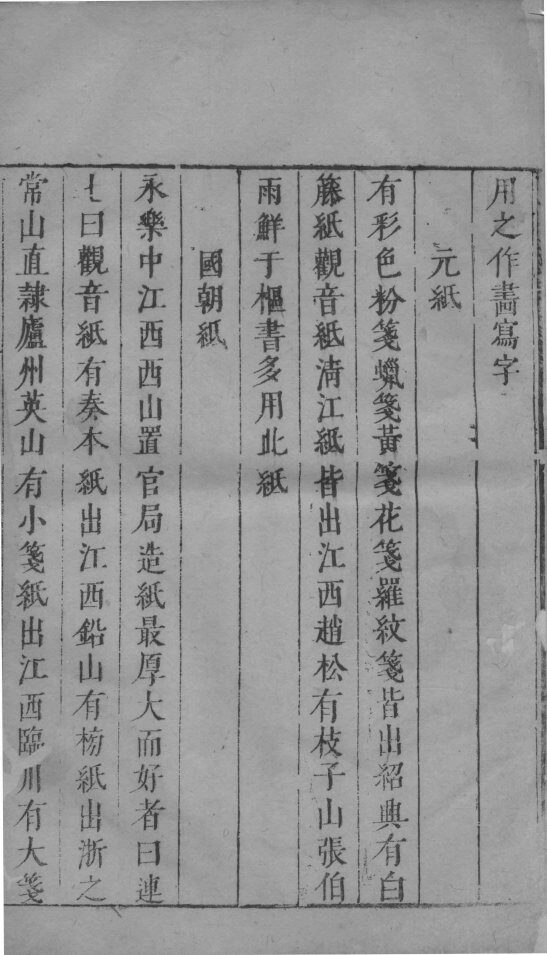 用之作畫寫字
元紙
有彩色粉箋蠟箋黃箋花箋羅紋箋皆出紹興有白
籐紙觀音紙清江紙皆出江西趙松有枝子山張伯
雨鮮于樞書多用此紙
國朝紙
永樂中江西西山置官局造紙最厚大而好者曰連
七曰觀音紙有奏本紙出江西鉛山有榜紙出浙之
常山直隸廬州英山有小箋紙出江西臨川有大箋